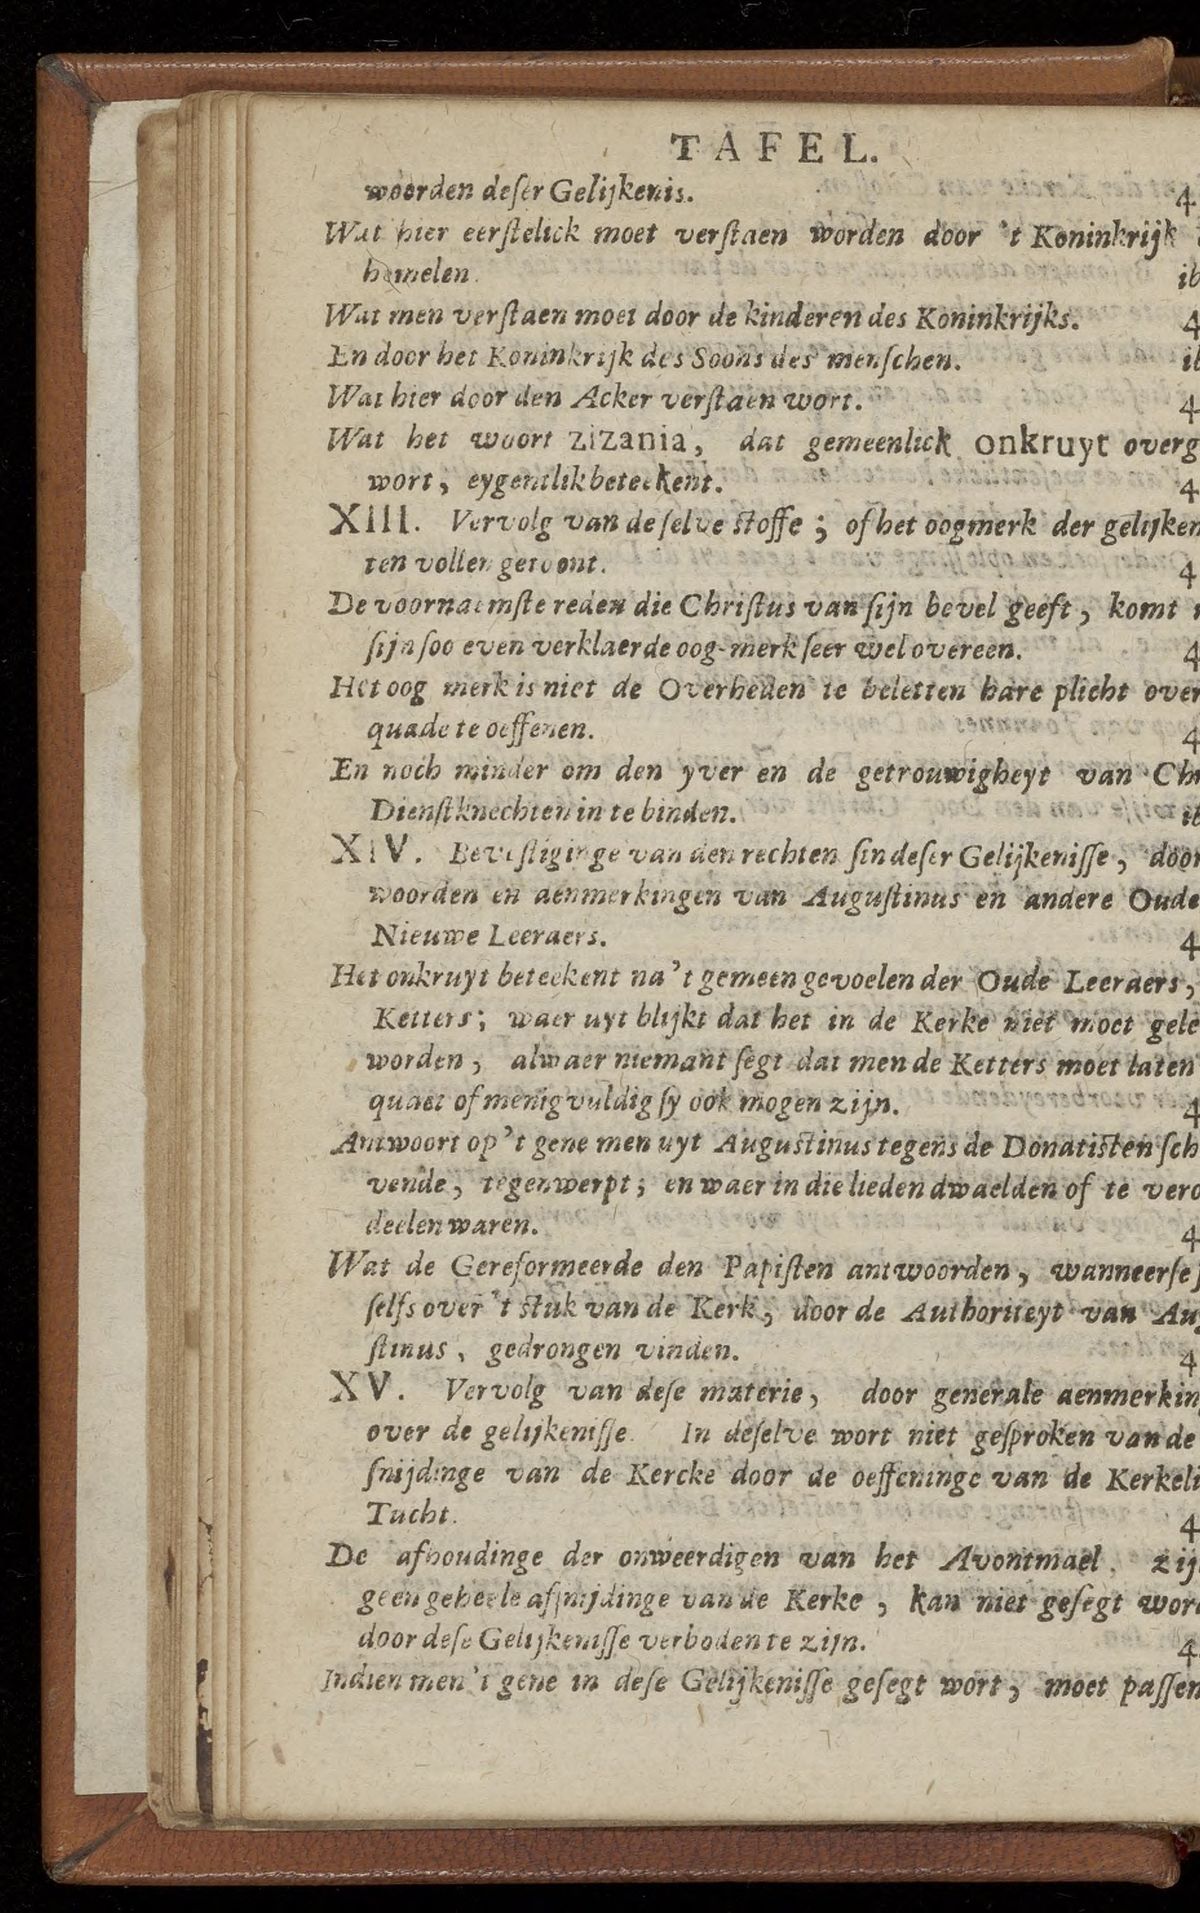 TAFEL.
woorden deſer Gelijkenis. 4
Wat hier eerſtelick moet verſtaen worden door 't Koninkrijk
hemelen. ib
Wat men verſtaen moet door de kinderen des Koninkrijks. 4
En door het Koninkrijk des Soons des menſchen. ib
Wat hier door den Acker verſtaen wort. 4
Wat het woort zizania, dat gemeenlick onkruyt overg
wort, eygentlik beteekent. 4
XIII. Vervolg van de ſelve ſtoffe; of het oogmerk der gelijken
ten vollen getoont. 4
De voornaemſte reden die Chriſtus van ſijn bevel geeft, komt
ſijn ſoo even verklaerde oog-merk ſeer wel overeen. 4
Het oog merk is niet de Overheden te beletten hare plicht over
quade te oeffenen. 4
En noch minder om den yver en de getrouwigheyt van Chr
Dienſtknechten in te binden. ib
XIV. Beveſtiginge van den rechten ſin deſer Gelijkeniſſe, door
woorden en aenmerkingen van Auguſtinus en andere Oude
Nieuwe Leeraers. 4
Het onkruyt beteekent na 't gemeen gevoelen der Oude Leeraers,
Ketters; waer uyt blijkt dat het in de Kerke niet moet gele
worden, alwaer niemant ſegt dat men de Ketters moet laten
quaet of menigvuldig ſy ook mogen zijn. 4
Antwoort op 't gene men uyt Auguſtinus tegens de Donatiſten ſch
vende, tegenwerpt; en waer in die lieden dwaelden of te vero
deelen waren. 4
Wat de Gereformeerde den Papiſten antwoorden, wanneerſe
ſelfs over 't ſtuk van de Kerk, door de Authoriteyt van Au
ſtinus, gedrongen vinden. 4
XV. Vervolg van deſe materie, door generale aenmerkin
over de gelijkeniſſe. In deſelve wort niet geſproken van de
ſnijdinge van de Kercke door de oeffeninge van de Kerkeli
Tucht. 4
De afhoudinge der onweerdigen van het Avontmael, zij
geen geheele afſnijdinge van de Kerke, kan niet geſegt wor
door deſe Gelijkeniſſe verboden te zijn. 4
Indien men 't gene in deſe Gelijkeniſſe geſegt wort, moet paſſen